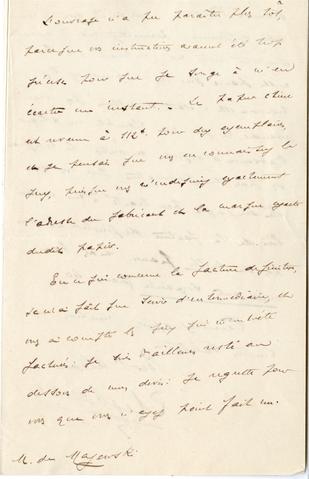 L'ouvrage n'a pu paraître plus tôt,
parce que vos instructions avaient été trop
précises pour que je songe à m'en
écarter un instant. – Le papier chine
est revenu à 112f pour dix exemplaires,
et je pensais que vous en connaissiez le
prix, puisque vous m'indiquiez exactement
l'adresse du fabricant et la marque exacte
dudit papier.
En ce qui concerne la facture définitive,
je n'ai fait que servir d'intermédiaire, et
vous ai compté les prix qui m'ont été
facturés: je suis d'ailleurs resté au
dessous de mes devis: je regrette pour
vous que vous n'ayez point fait un
M. de Majewski